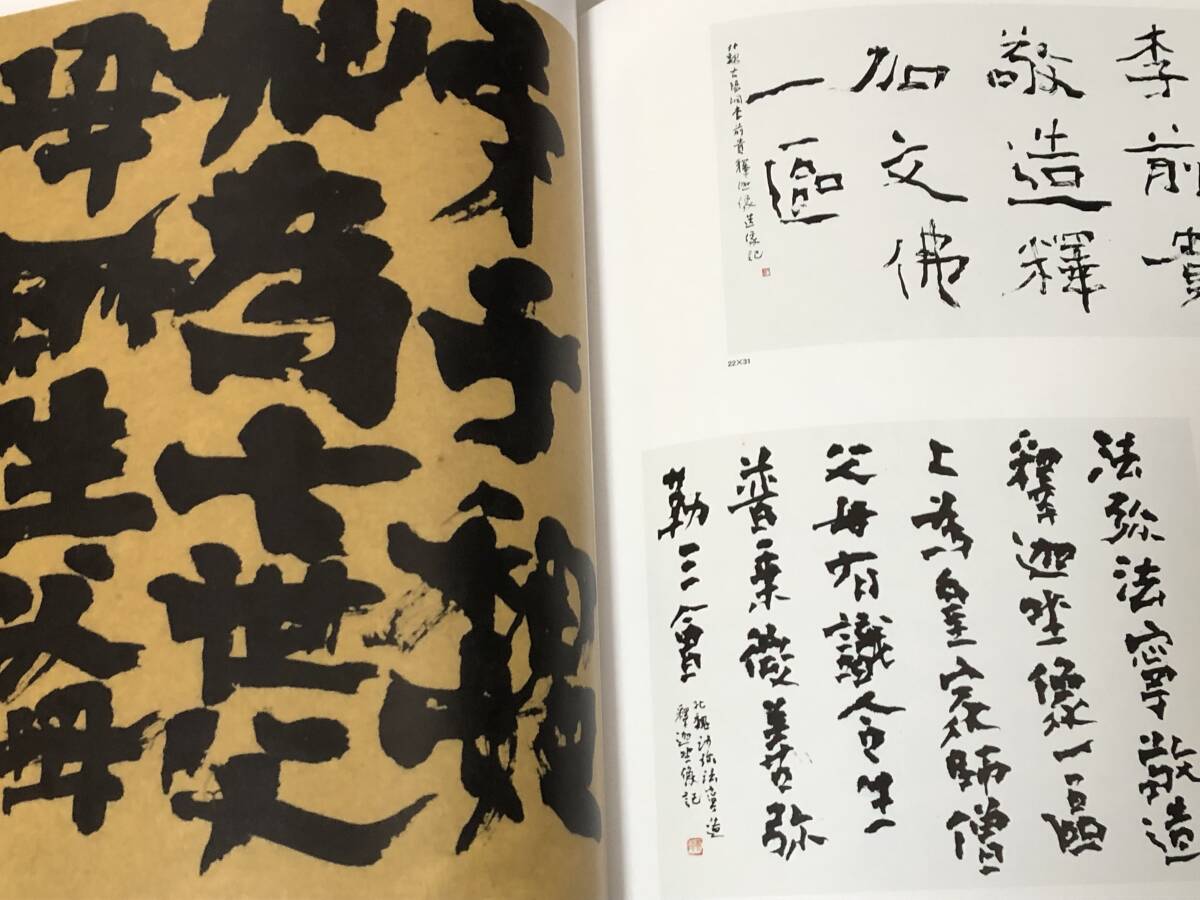 李前貴
敬造釋
加文佛
一區
北魏古陽洞李前貴釋迦像造像記
22×31
法弥法寧敬造
釋迦坐像一區
上為皇家師僧
父母有識含生
普乗微善弥
勒三會
北魏沙弥法寧造
釋迦坐像記
子魏
地為七世父
母所生父母